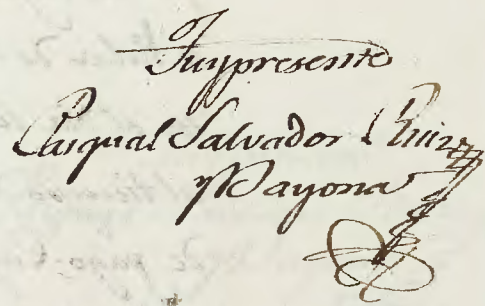 Fuy presente
Pasqual Salvador Ruiz
y Bayona